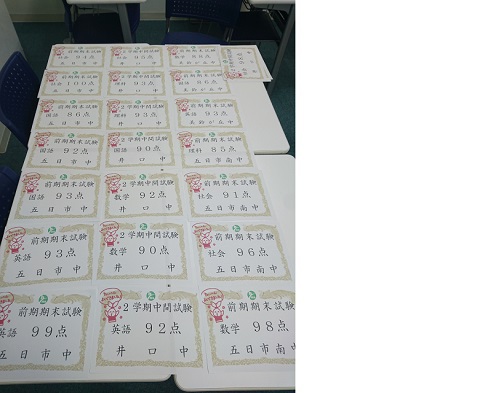 前期期末試験
2学期中間試験
前期期末試験
100点
2学期中間試験
93点
前期期末試験
96点
五日市中
井口中
前期期末試験
国語 86点
五日市中
2学期中間試験
理科 93点
井口中
前期期末試験
93点
前期期末試験
国語 92点
五日市中
2学期中間試験
国語 90点
井口中
前期期末試験
理科 85点
五日市南中
前期期末試験
国語 93点
五日市中
2学期中間試験
数学 92点
井口中
前期期末試験
社会 91点
五日市南中
前期期末試験
英語 93点
五日市中
2学期中間試験
数学 90点
井口中
前期期末試験
社会 96点
五日市南中
前期期末試験
英語 99点
五日市中
2学期中間試験
英語 92点
井口中
前期期末試験
数学 98点
五日市南中